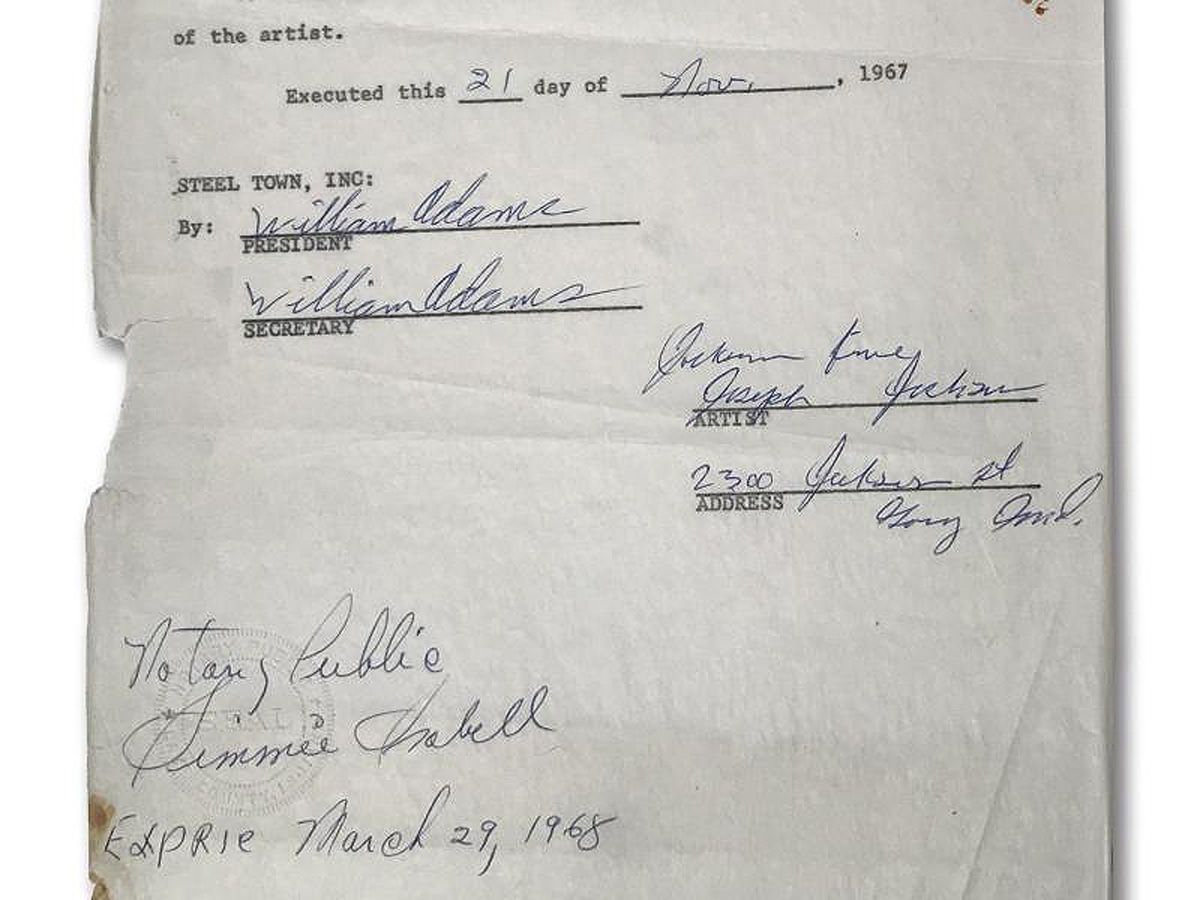 of the artist.
Executed this 21 day of Nov. , 1967
STEEL TOWN, INC:
By: William Adams
PRESIDENT
William Adams
SECRETARY
Jackson Five
Joseph Jackson
ARTIST
2300 Jackson st
ADDRESS
Gary Ind.
Notary Public
SEAL
Jimmie Isabell
EXPRIE March 29, 1968